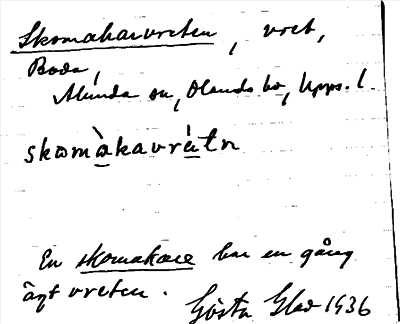 Skomakarvreten, vret,
Boda,
Alunda sn, Olands hd, Upps. l.
skomàkavrètn
En skomakare har en gång
ägt vreten.
Gösta Glad 1936